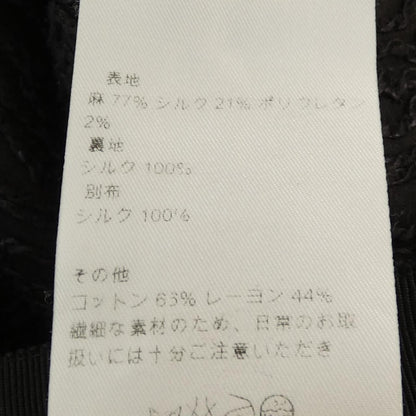 表地
麻 77% シルク 21% ポリウレタン
2%
裏地
シルク 100%
別布
シルク 100%
その他
コットン 63% レーヨン 44%
繊細な素材のため、日常のお取
扱いには十分ご注意いただき